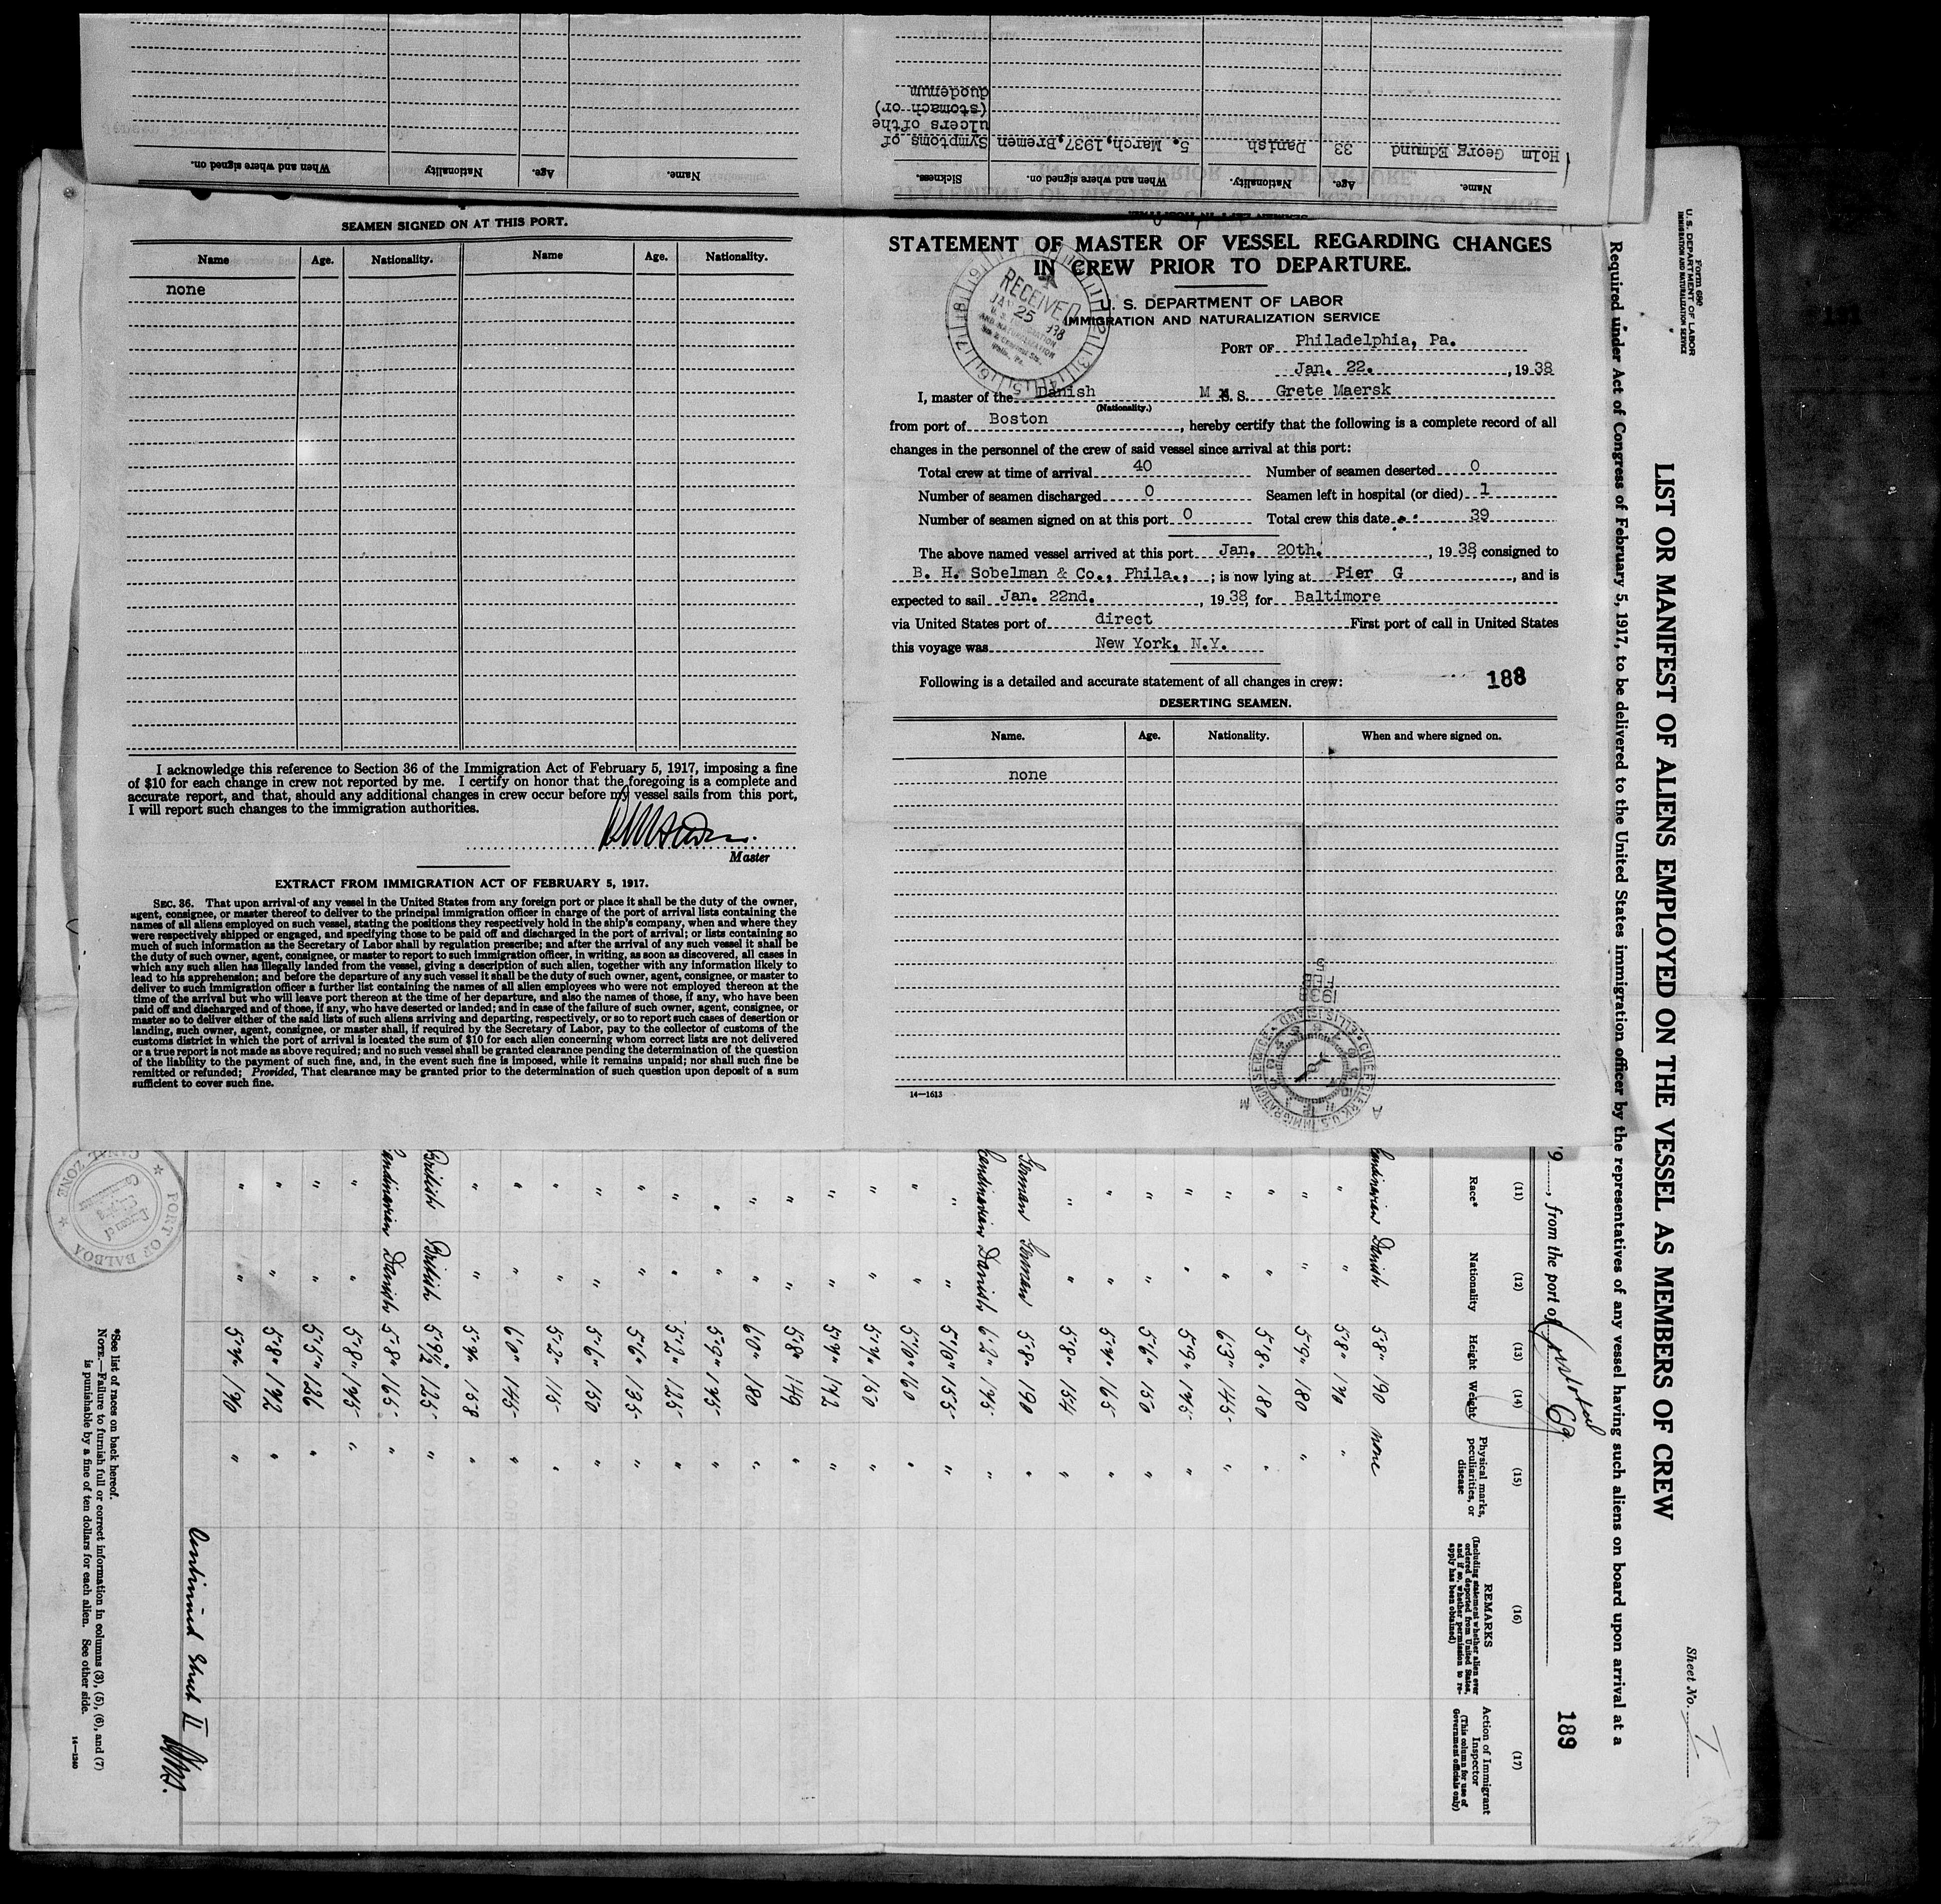 Name.
Age.
Nationality
When and where signed on.
Name.
Age.
Nationality.
When and where signed on.
Sickness.
Holm Georg Edmund 33 Danish 5. March, 1937, Bremen Symptoms of
ulcers of the
(stomach or)
duodenum
SEAMEN SIGNED ON AT THIS PORT.
Name Age. Nationality. Name Age. Nationality.
none
I acknowledge this reference to Section 36 of the Immigration Act of February 5, 1917, imposing a fine
of $10 for each change in crew not reported by me. I certify on honor that the foregoing is a complete and
accurate report, and that, should any additional changes in crew occur before my vessel sails from this port,
I will report such changes to the immigration authorities.
Master
EXTRACT FROM IMMIGRATION ACT OF FEBRUARY 5, 1917.
SEC. 36. That upon arrival of any vessel in the United States from any foreign port or place it shall be the duty of the owner,
agent, consignee, or master thereof to deliver to the principal immigration officer in charge of the port of arrival lists containing the
names of all aliens employed on such vessel, stating the positions they respectively hold in the ship's company, when and where they
were respectively shipped or engaged, and specifying those to be paid off and discharged in the port of arrival; or lists containing so
much of such information as the Secretary of Labor shall by regulation prescribe; and after the arrival of any such vessel it shall be
the duty of such owner, agent, consignee, or master to report to such immigration officer, in writing, as soon as discovered, all cases in
which any such alien has illegally landed from the vessel, giving a description of such alien, together with any information likely to
lead to his apprehension; and before the departure of any such vessel it shall be the duty of such owner, agent, consignee, or master to
deliver to such immigration officer a further list containing the names of all alien employees who were not employed thereon at the
time of the arrival but who will leave port thereon at the time of her departure, and also the names of those, if any, who have been
paid off and discharged and of those, if any, who have deserted or landed; and in case of the failure of such owner, agent, consignee, or
master so to deliver either of the said lists of such aliens arriving and departing, respectively, or so to report such cases of desertion or
landing, such owner, agent, consignee, or master shall, if required by the Secretary of Labor, pay to the collector of customs of the
customs district in which the port of arrival is located the sum of $10 for each alien concerning whom correct lists are not delivered
or a true report is not made as above required; and no such vessel shall be granted clearance pending the determination of the question
of the liability to the payment of such fine, and, in the event such fine is imposed, while it remains unpaid; nor shall such fine be
remitted or refunded; Provided, That clearance may be granted prior to the determination of such question upon deposit of a sum
sufficient to cover such fine.
STATEMENT OF MASTER OF VESSEL REGARDING CHANGES
IN CREW PRIOR TO DEPARTURE.
RECEIVED
JAN 25 1938
U. S. DEPARTMENT OF LABOR
IMMIGRATION AND NATURALIZATION SERVICE
PORT OF Philadelphia, Pa.
Jan. 22. , 1938
I, master of the Danish M S. Grete Maersk
(Nationality.)
from port of Boston , hereby certify that the following is a complete record of all
changes in the personnel of the crew of said vessel since arrival at this port:
Total crew at time of arrival 40 Number of seamen deserted 0
Number of seamen discharged 0 Seamen left in hospital (or died) 1
Number of seamen signed on at this port 0 Total crew this date 39
The above named vessel arrived at this port Jan. 20th. , 1938, consigned to
B. H. Sobelman & Co., Phila., ; is now lying at Pier G , and is
expected to sail Jan. 22nd. , 1938, for Baltimore
via United States port of direct First port of call in United States
this voyage was New York, N.Y.
Following is a detailed and accurate statement of all changes in crew: 188
DESERTING SEAMEN.
Name. Age. Nationality. When and where signed on.
none
1938
FEB
5
CHIEF CLERK U.S. IMMIGRATION SERVICE • ELLIS ISLAND •
A M
14—1613
Form 680
U. S. DEPARTMENT OF LABOR
IMMIGRATION AND NATURALIZATION SERVICE
Sheet No. I
LIST OR MANIFEST OF ALIENS EMPLOYED ON THE VESSEL AS MEMBERS OF CREW
Required under Act of Congress of February 5, 1917, to be delivered to the United States immigration officer by the representatives of any vessel having such aliens on board upon arrival at a
19 , from the port of Cristobal 189
(11) (12) (13) (14) (15) (16) (17)
Race* Nationality Height Weight Physical marks, peculiarities, or disease
REMARKS
(Including statement whether alien ever ordered deported from United States, and if so, whether permission to re-apply has been obtained)
Action of Immigrant Inspector
(This column for use of Government officials only)
Danish 5'8" 190 none
" " 5'8" 170 "
" " 5'9" 180 "
" " 5'8" 180 "
" " 6'3" 145 "
" " 5'9" 145 "
" " 5'6" 150 "
" " 5'7" 165 "
" " 5'8" 154 "
German German 5'8" 190 "
Danish 6'2" 145 "
" " 5'10" 155 "
" " 5'10" 160 "
" " 5'7" 150 "
" " 5'7" 142 "
" " 5'8" 149 "
" " 6'0" 180 "
" " 5'9" 145 "
" " 5'2" 125 "
" " 5'6" 135 "
" " 5'6" 150 "
" " 5'2" 115 "
" " 6'0" 145 "
" " 5'7" 158 "
British British 5'9½ 125 "
Danish 5'8" 165 "
" " 5'8" 145 "
" " 5'5" 126 "
" " 5'8" 142 "
" " 5'7" 140 "
Continued Sheet II
*See list of races on back hereof.
NOTE.—Failure to furnish full or correct information in columns (3), (5), (6), and (7)
is punishable by a fine of ten dollars for each alien. See other side.
14—1240
PORT OF BALBOA
CANAL ZONE